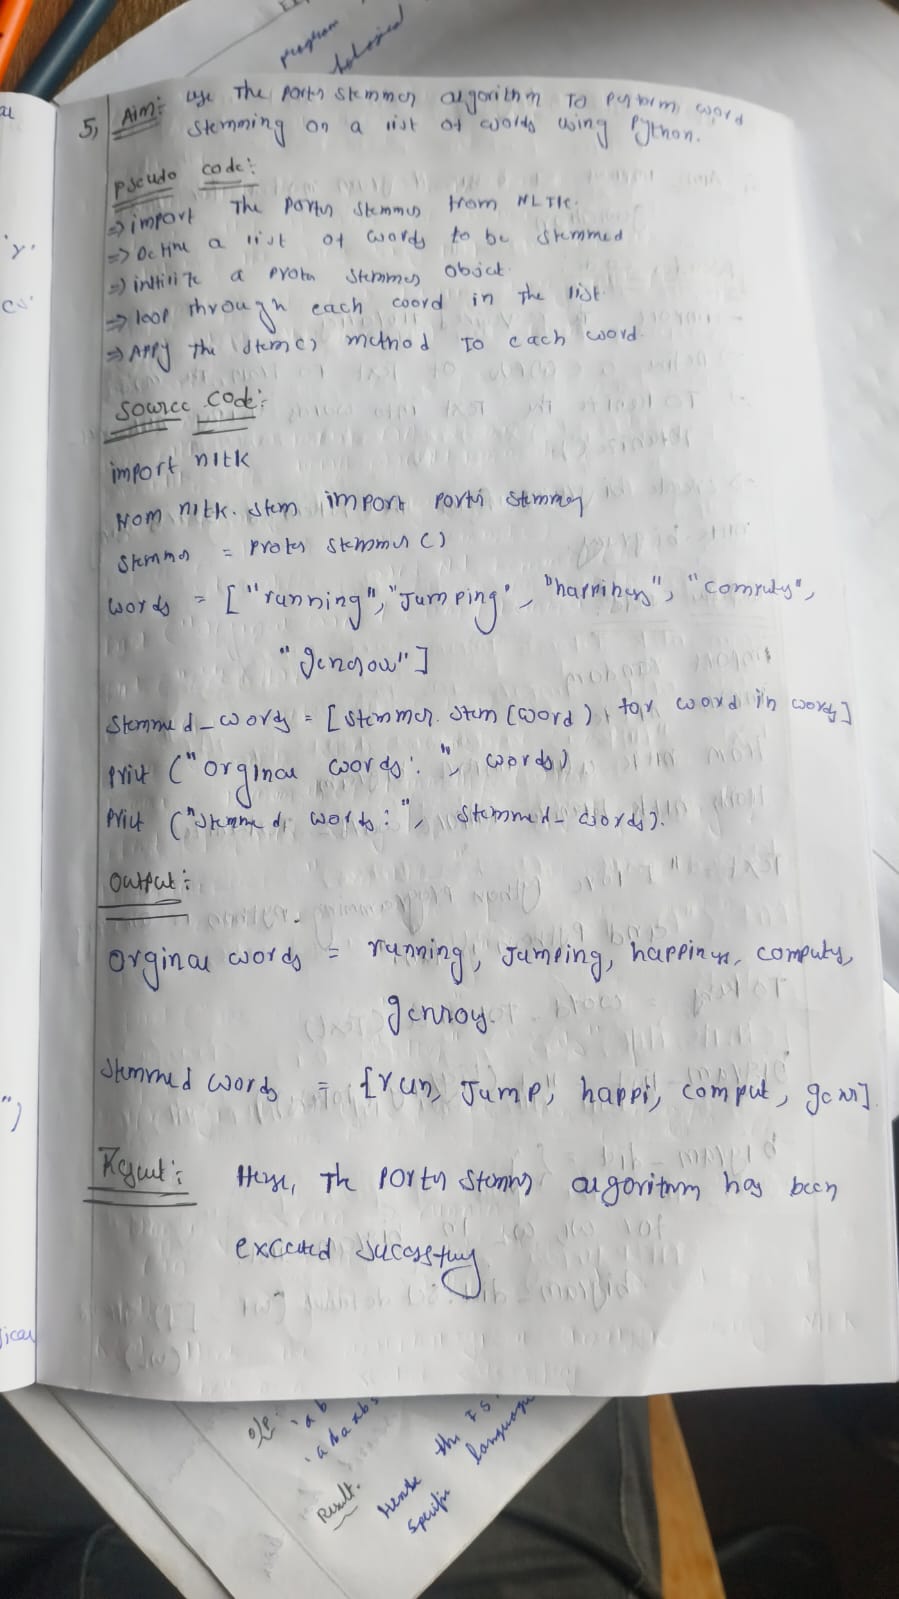 program
5, Aim:- use The porter stemmer algorithm To perform word
stemming on a list of words using Python.
pseudo code:-
⇒ import The porter stemmer from NLTK.
⇒ Define a list of words to be stemmed
⇒ initilize a proter stemmer object.
⇒ loop through each word in The list.
⇒ Apply The stem() method To each word.
Source code:-
import nltk
from nltk. stem import porter stemmer
stemmer = proter stemmer ()
words = ["running", "Jumping", "happiness",
Stemmed_words = [stemmer. stem (word), for word in words]
print ("orginal words: ", words)
print ("stemmed words:", stemmed_words).
Output:-
Orginal words = running, Jumping, happiness,
Stemmed words = [run, Jump, happi, comput,
Result:- Hense, The porter stemmer algorithm has been
excuted sucessfuly.
O/P:-
Result.
Hense the
specific language